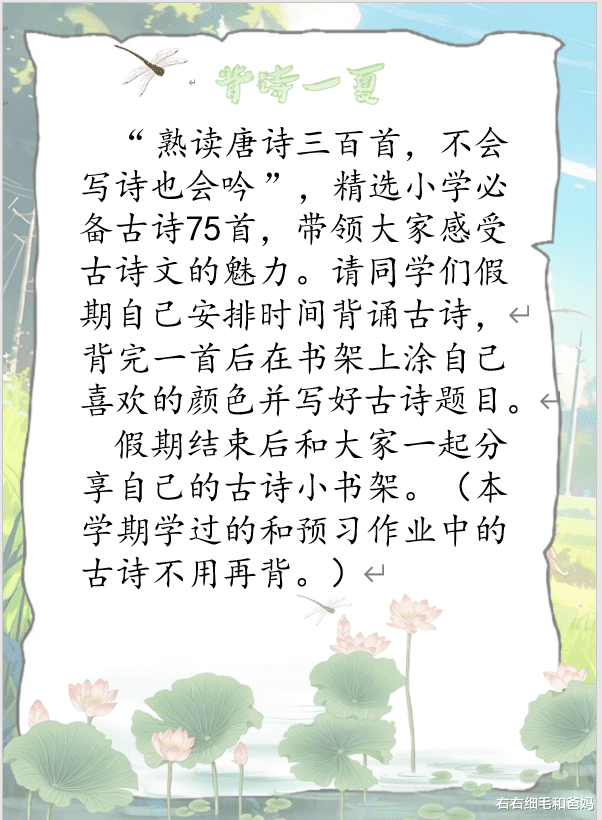 背诗一夏
“熟读唐诗三百首，不会
写诗也会吟”，精选小学必
备古诗75首，带领大家感受
古诗文的魅力。请同学们假
期自己安排时间背诵古诗，
背完一首后在书架上涂自己
喜欢的颜色并写好古诗题目。
假期结束后和大家一起分
享自己的古诗小书架。（本
学期学过的和预习作业中的
古诗不用再背。）
右右细毛和爸妈